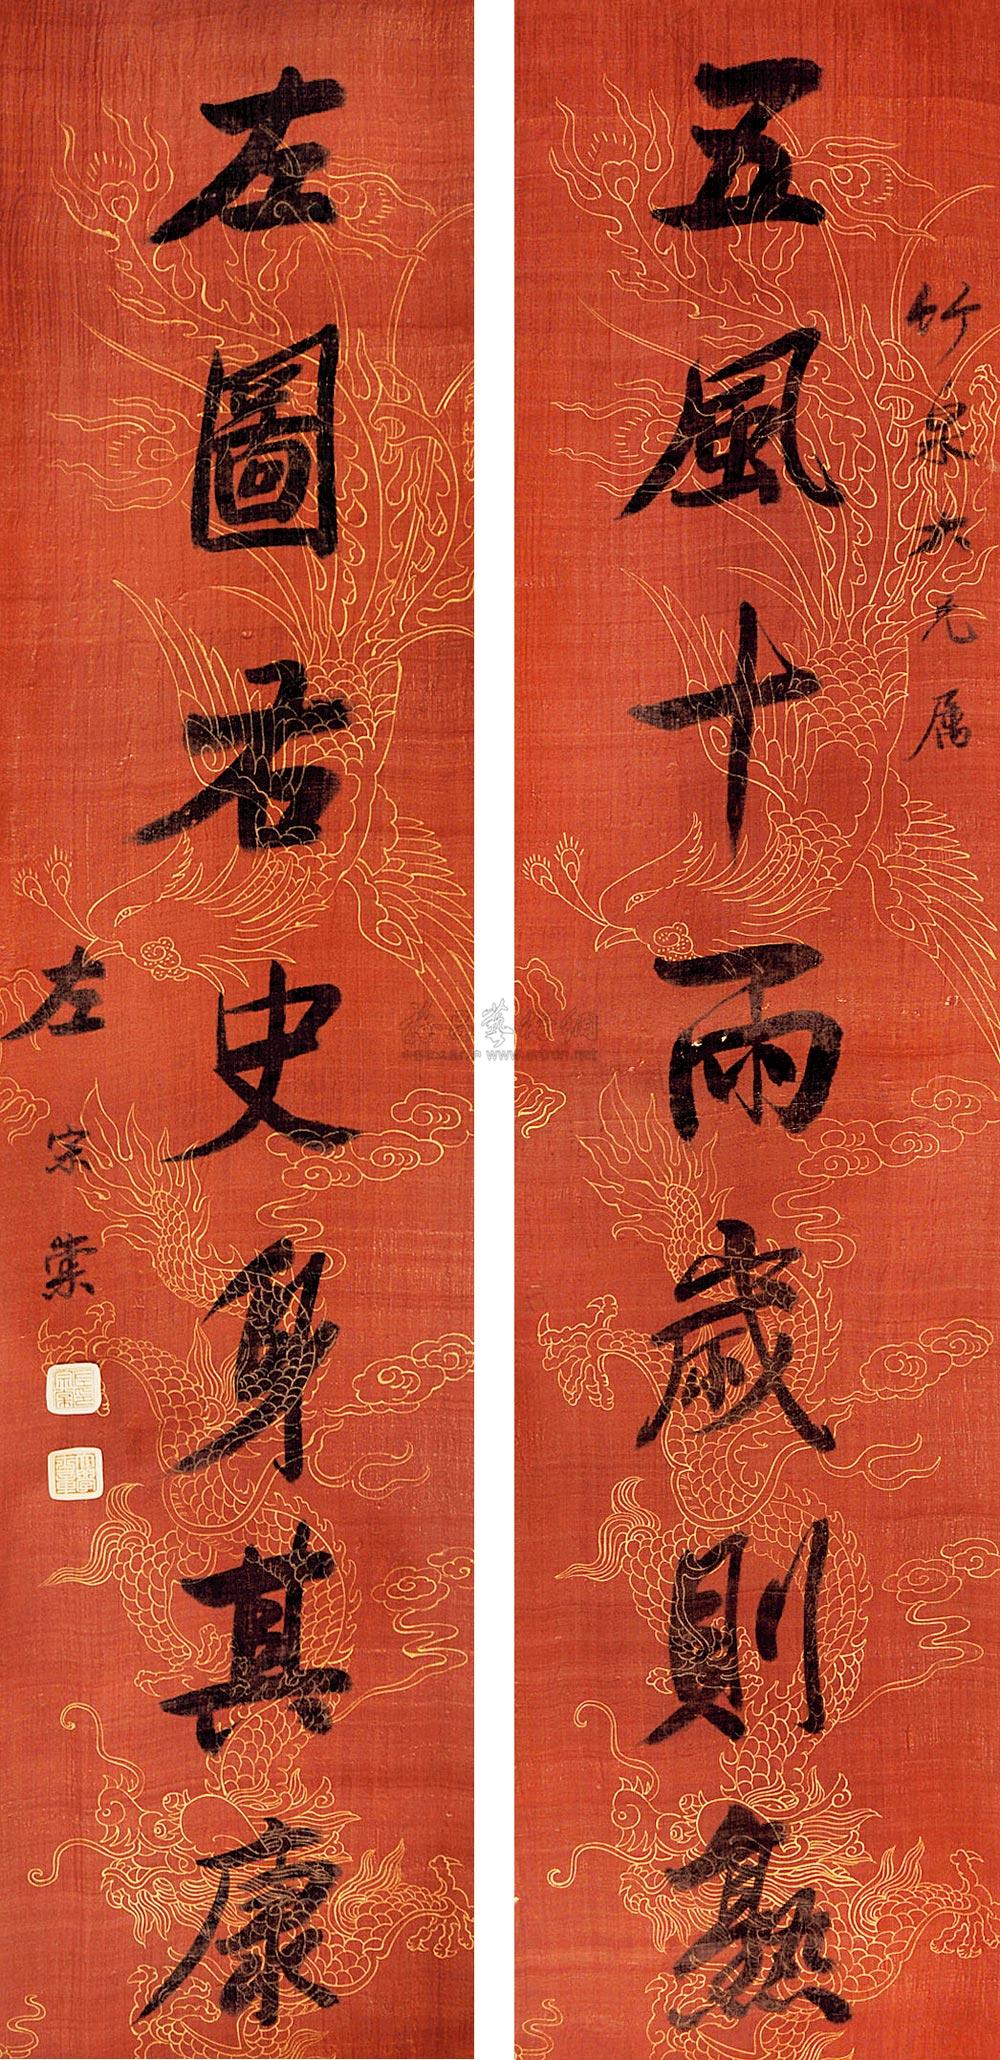 五風十雨歲則熟
竹泉六兄属
左圖右史身其康
左宗棠
大學士章
www.artron.net